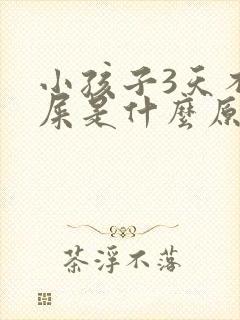 小孩子3天不
屎是什麼原
茶浮不落